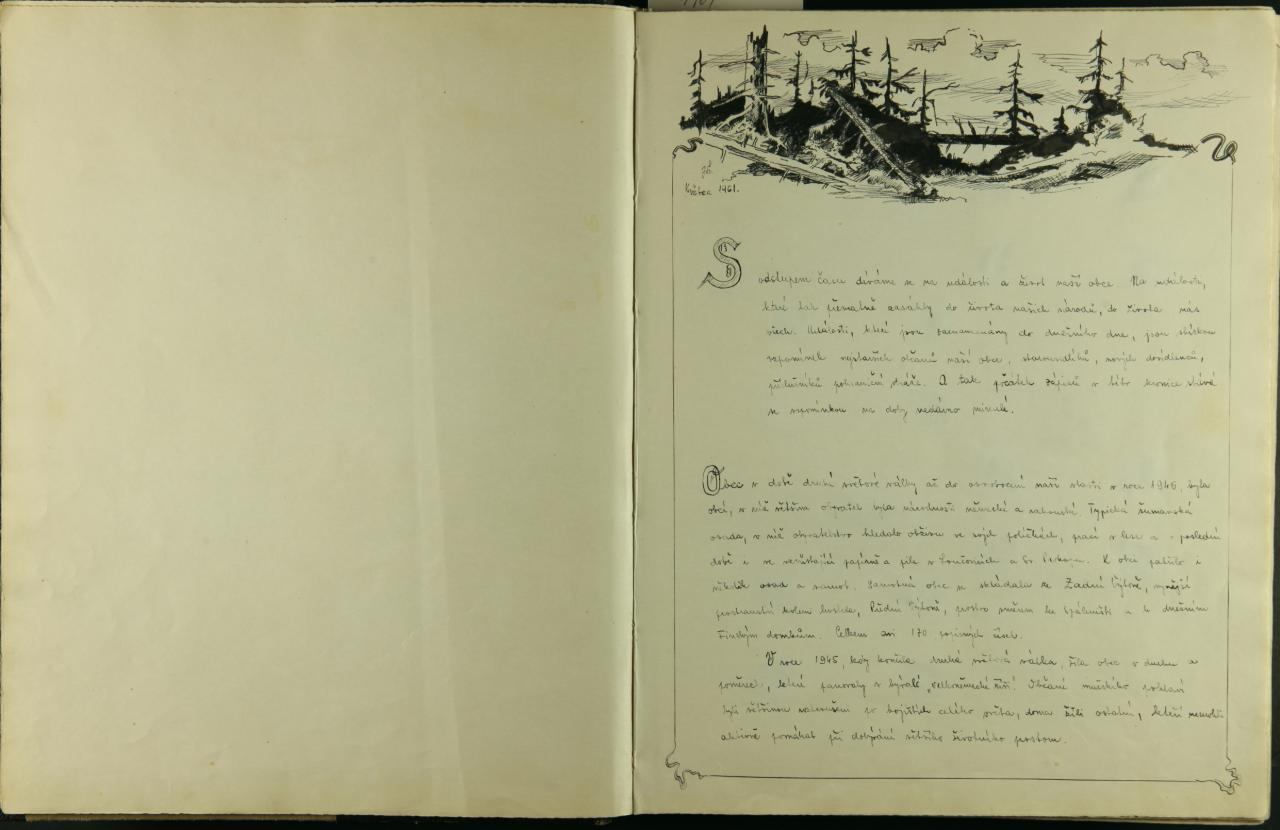 Květen 1961.
S odstupem času díváme se na události a život naší obce. Na události,
které tak zasáhly do života našich národů, do života nás
všech. Události, které jsou zaznamenány do dnešního dne, jsou sbírkou
vzpomínek nejstarších občanů naší obce, starousedlíků, nových dosídlenců,
příslušníků pohraniční stráže. A tak počátek zápisů v této kronice
se vzpomínkou na doby nedávno minulé.
Obec v době druhé světové války až do osvobození naší vlasti v roce 1945, byla
obcí, v níž většina obyvatel byla národnosti německé a rakouské. Typická šumavská
osada, v níž obyvatelstvo hledalo obživu ve svých políčkách, prací v lese a v poslední
době i ve papírně a pile v Loučovicích a Vč. K obci patřilo i
několik osad a samot. Samotná obec se skládala ze Zadní Výtoně, nynější
prostranství kolem kostela, Přední Výtoně, prostor směrem ke spáleništi a k dnešním
Finským domkům. Celkem asi 170 popisných čísel.
V roce 1945, kdy končila druhá světová válka, žila obec v duchu a
poměrech, které panovaly v bývalé „velkoněmecké říši". Občané mužského pohlaví
byli většinou po bojištích celého světa, doma žili ostatní, kteří nemohli
aktivně pomáhat při dobývání většího životního prostoru.